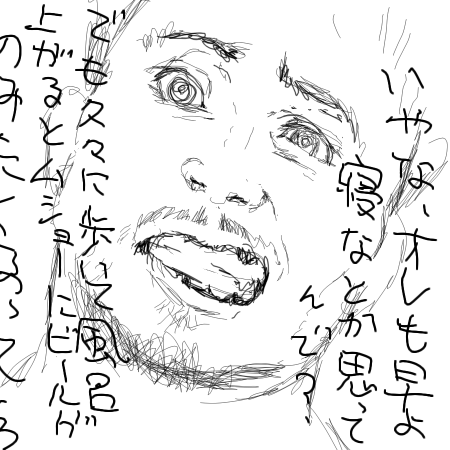 いやな、オレも早よ
寝なとか思って
んで?、
でも久々に歩いて風呂
上がるとムショーにビールが
のみたく